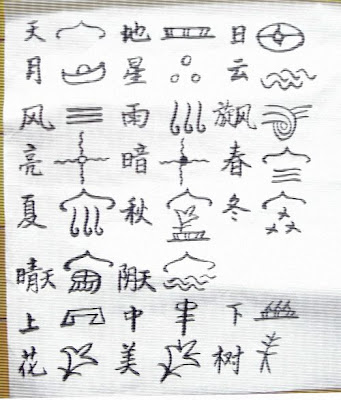 天 地 日
月 星 云
风 雨 旋风
亮 暗 春
夏 秋 冬
晴天 阴天
上 中 下
花 美 树